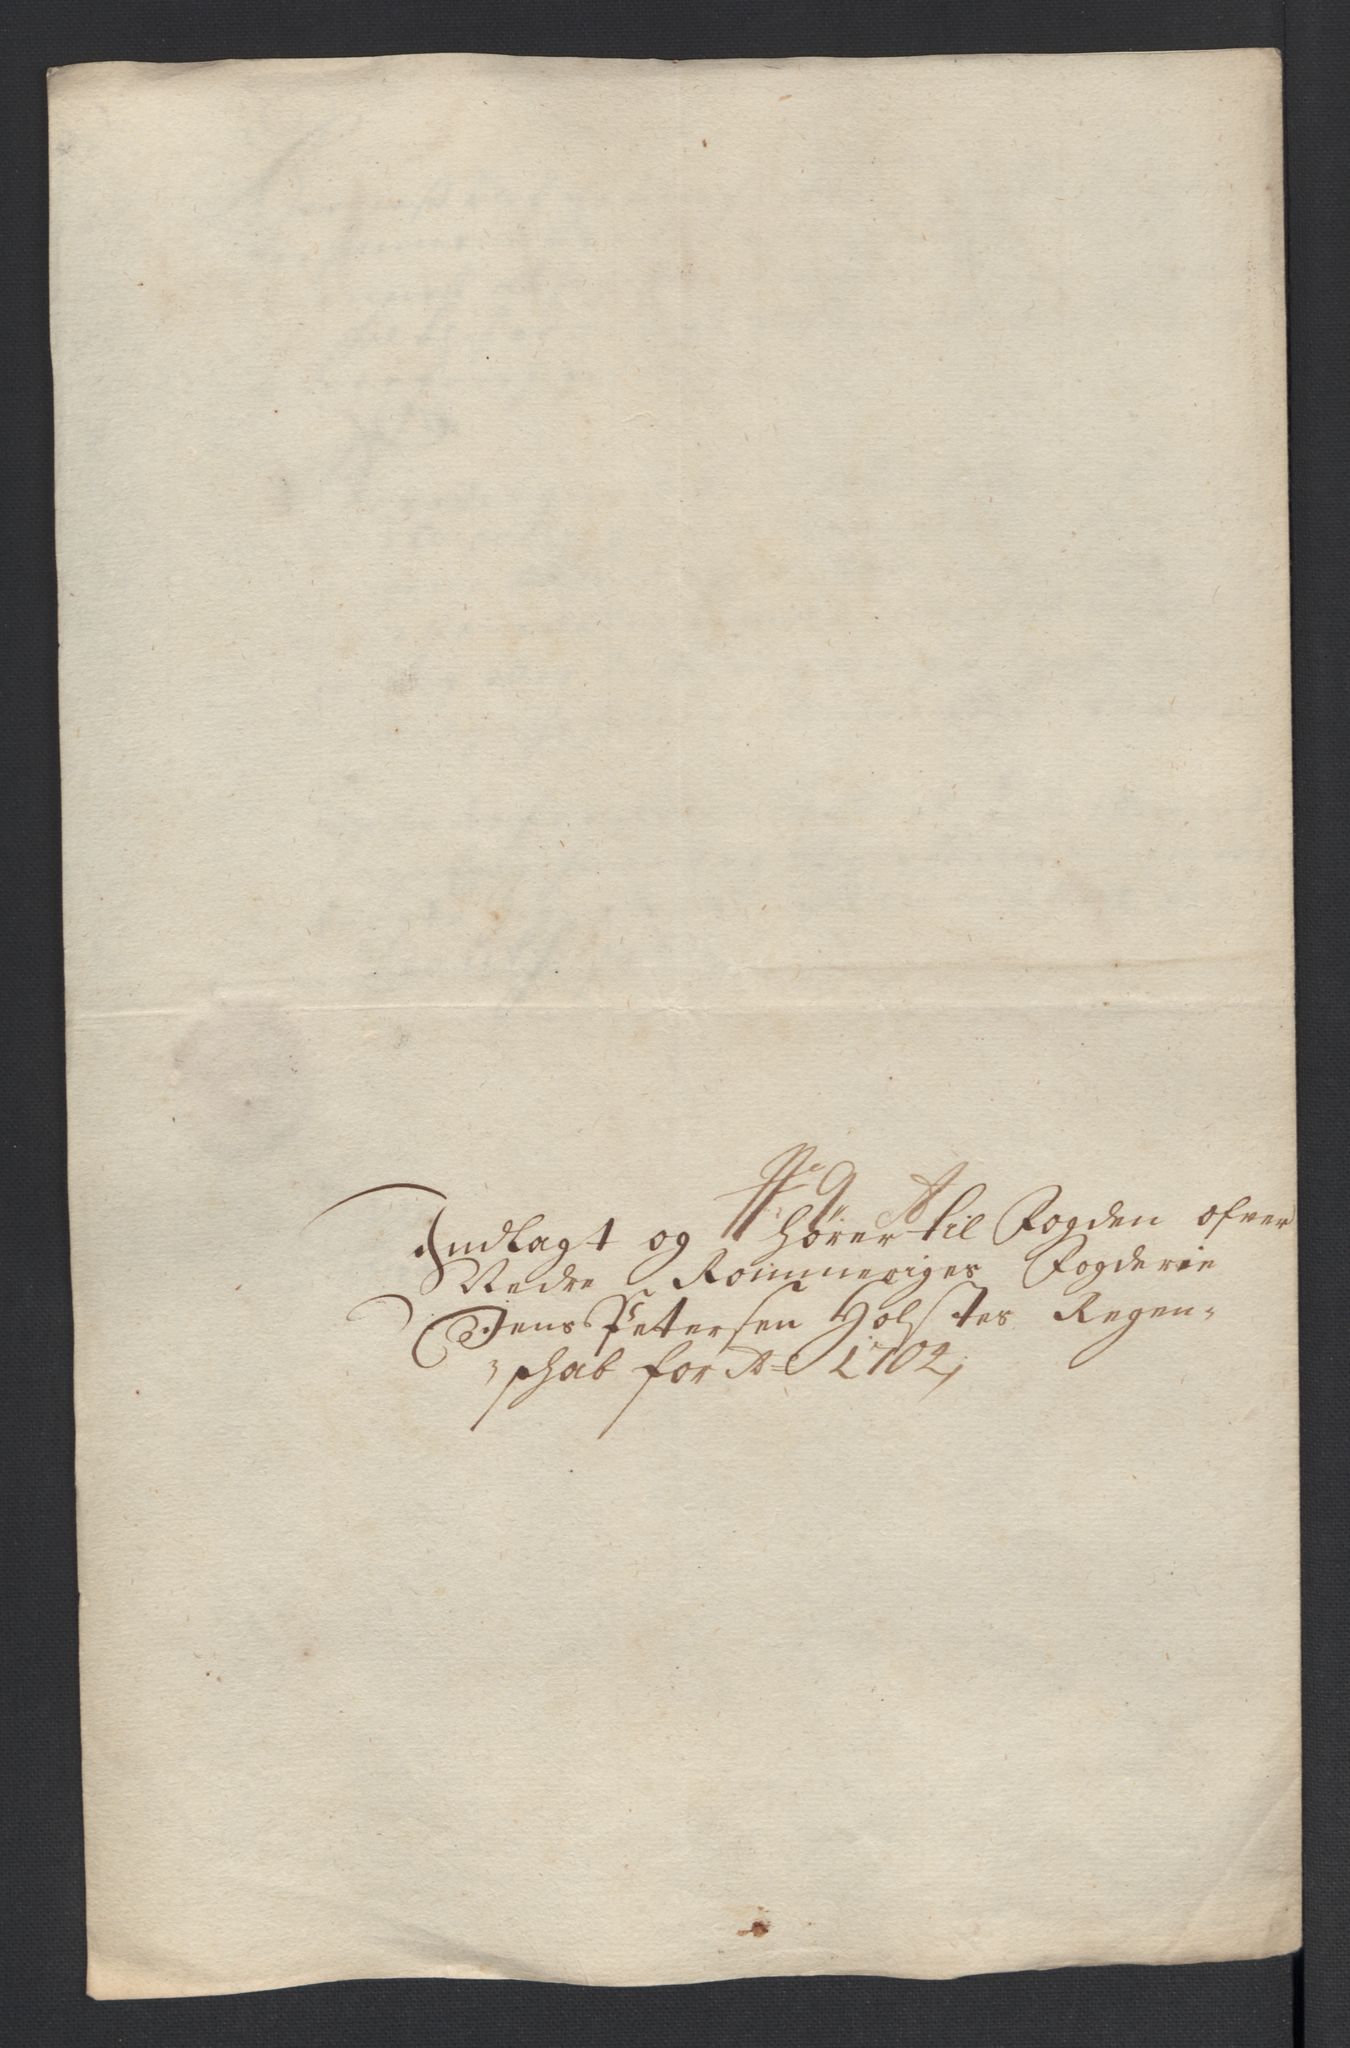 Indlagt og hører til Fogden ofver
Nedre Rommeriges Fogderie
Jens Petersen Holstes Regen-
schab for Ao 1702,